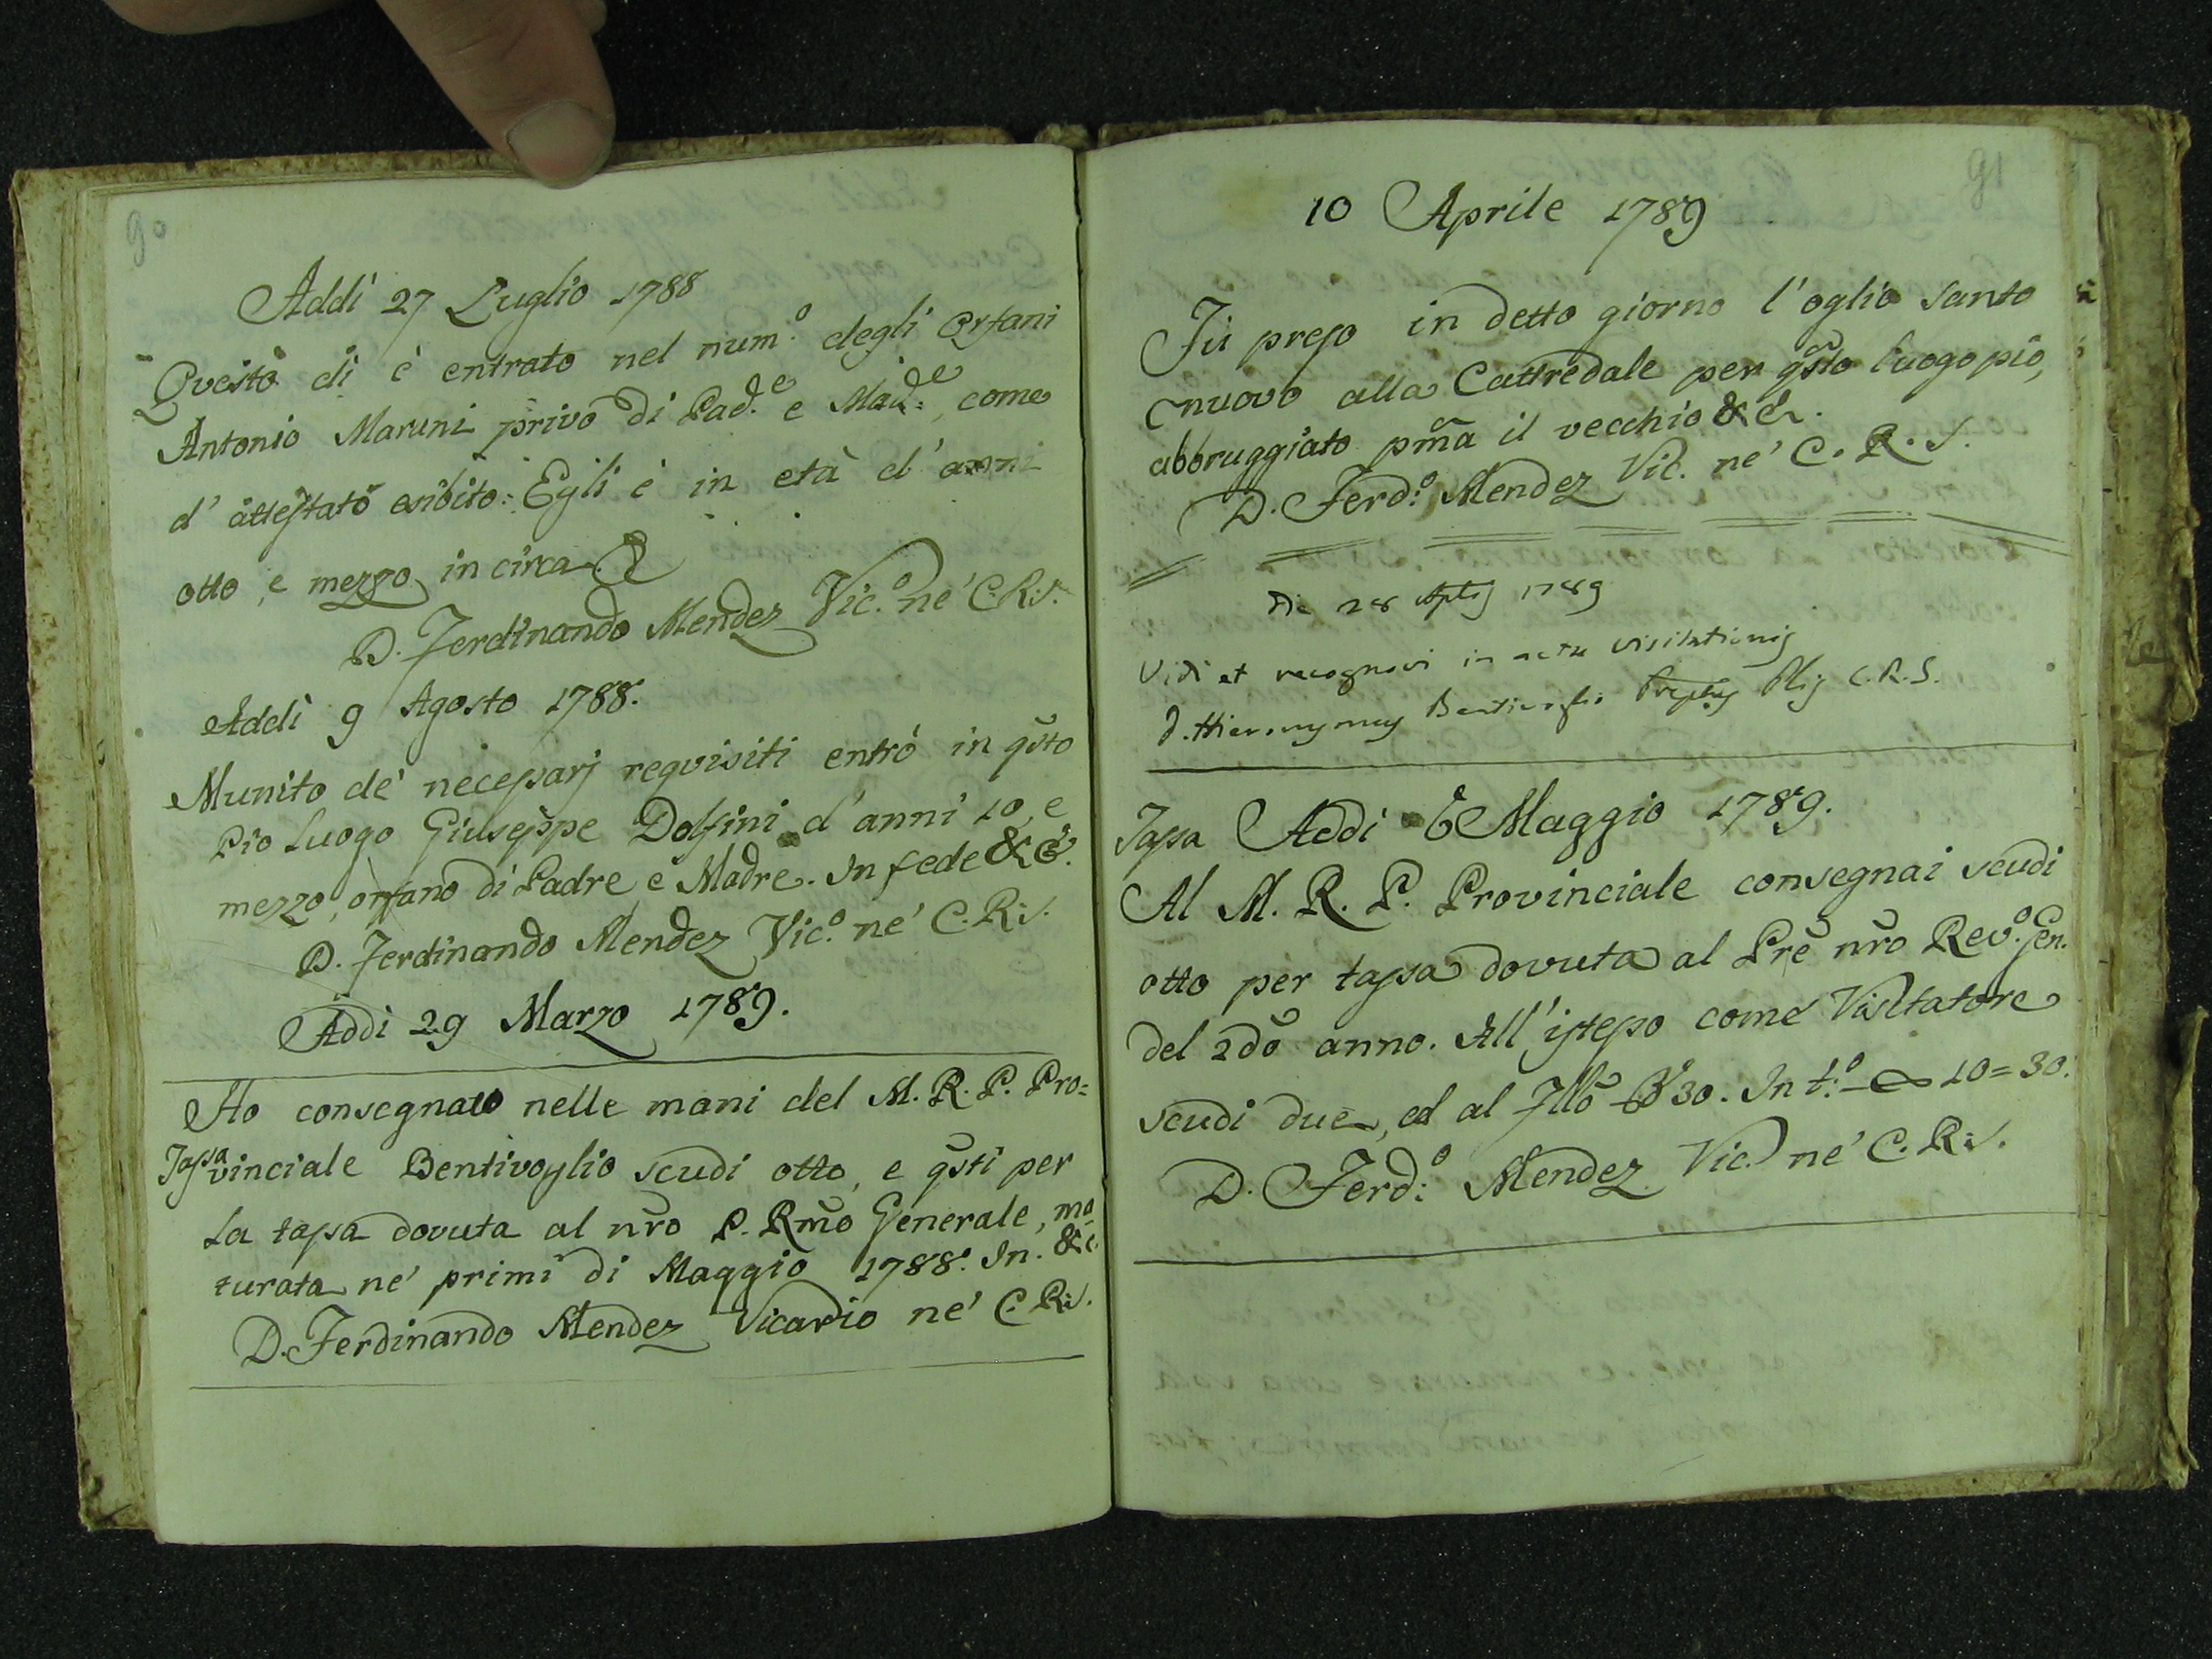 90
Addì 27 Luglio 1788
Questo dì è entrato nel num.o degli Orfani
Antonio Maruni privo di Pad.e e Mad.e, come
d' attestato esibito: Egli è in età d' anni
otto, e mezzo in circa.
D. Ferdinando Mendez Vic.o ne' C.R.S.
Addì 9 Agosto 1788.
Munito de' necessarj requisiti entrò in qsto
Pio Luogo Giuseppe Dolfini d' anni 10, e
mezzo, orfano di Padre, e Madre. In fede &c.
D. Ferdinando Mendez Vic.o ne' C.R.S.
Addì 29 Marzo 1789.
Ho consegnato nelle mani del M. R. P. Pro=
Tassa
vinciale Bentivoglio scudi otto, e qsti per
La tassa dovuta al nro P. Rmo Generale, ma
turata ne' primi di Maggio 1788. In. &c.
D. Ferdinando Mendez Vicario ne' C.R.S.
91
10 Aprile 1789
Fu preso in detto giorno l' oglio Santo
nuovo alla Cattredale per qsto luogo pio,
abbruggiato pma il vecchio &c.
D. Ferd.o Mendez Vic. ne' C. R. S.
Die 28 Aplis 1789
Vidi et recognovi in actu visitationis
D. Hieronymus Bentivoglio C.R.S.
Tassa Addì Maggio 1789.
Al M. R. P. Provinciale consegnai scudi
otto per tassa dovuta al Pre nro Rev.o Gen.
del 2do anno. All' istesso come Visitatore
scudi due, ed al Illo 30. In t.o 10=30.
D. Ferd.o Mendez Vic. ne' C.R.S.